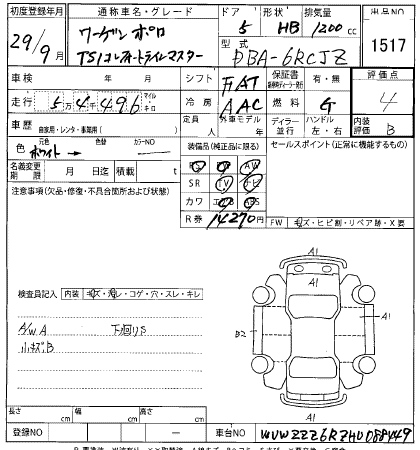 初度登録年月 通称車名・グレード ドア 形状 排気量 出品NO
29/9月 ワーゲン ポロ 5 HB 1200cc 1517
TSIコンフォートラインマスター 型式 DBA-6RCJZ
車検 年 月 シフト FAT 保証書 有・無 評価点
走行 5万4千496 マイル キロ 冷房 AAC 燃料 G 4
車歴 自家用・レンタ・事業用( ) 定員 人 外車モデル 年 ディーラー 並行 ハンドル 左・右 内装評価 B
色 元色 ホワイト → カラーNO 装備品(純正品に限る) セールスポイント(正常に機能するもの)
名義変更期限 月 日 積載 t PS PW AW
注意事項(欠品・修復・不具合箇所および状態) SR TV ナビ
カワ エアB ABS
R券 14270円 FW キズ・ヒビ割・リペア跡・X要
A1
検査員記入 内装 キズ・汚レ・コゲ・穴・スレ・キレ
A/W A 下廻りS
小キズ.B
B2
A1
A1
A1
長さ cm 幅 cm 高さ cm
登録NO ー 車台NO WVWZZZ6RZHU088449